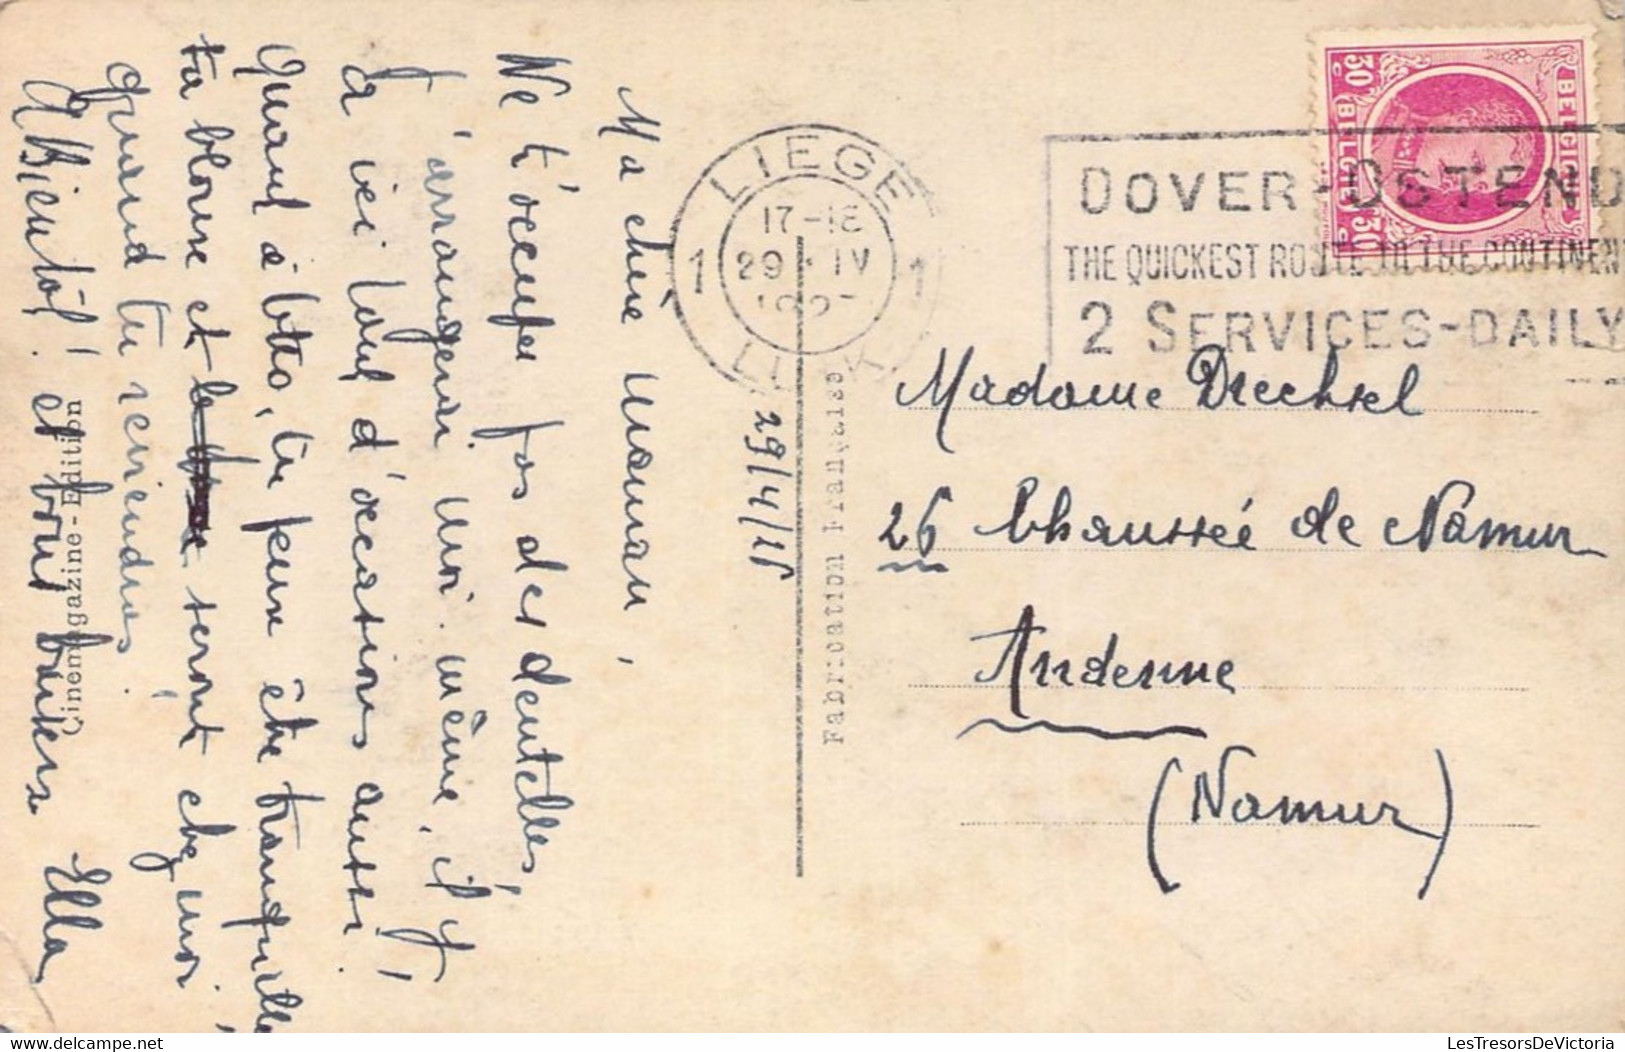 Ma chère maman,
Ne t'occupe pas des dentelles,
j'arrangerai moi-même, il y
a ici tant d'occasions aussi!
Quand à Otto, tu peux être tranquille
ta blouse et seront chez moi,
quand tu reviendras
A Bientôt! et bons baisers Ella
Cinémagazine-Edition
29/4/25
Fabrication Française
LIEGE
1 17-18 1
29 IV
LUIK
BELGIQUE
BELGIE
30
30
DOVER-OSTEND
THE QUICKEST ROUTE TO THE CONTINEN
2 SERVICES-DAILY
Madame Drechsel
26 Chaussée de Namur
Andenne
(Namur)
LesTresorsDeVictoria
delcampe.net